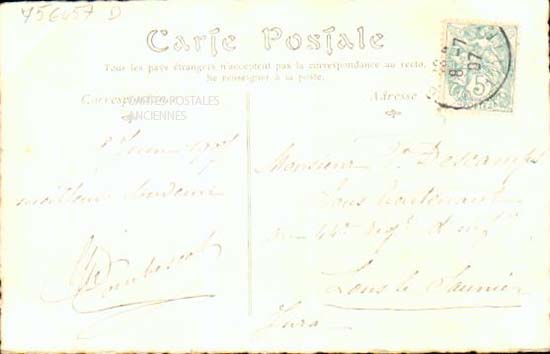 756457 D
Carte Postale
Tous les pays étrangers n'acceptent pas la correspondance au recto.
Se renseigner à la poste.
Correspondance
CARTES POSTALES
ANCIENNES
Adresse
8 -7
07
5
meilleur souvenir
Monsieur Descamps
Sous lieutenant
au 44e Regt d'Inf
Lons le Saunier
Jura